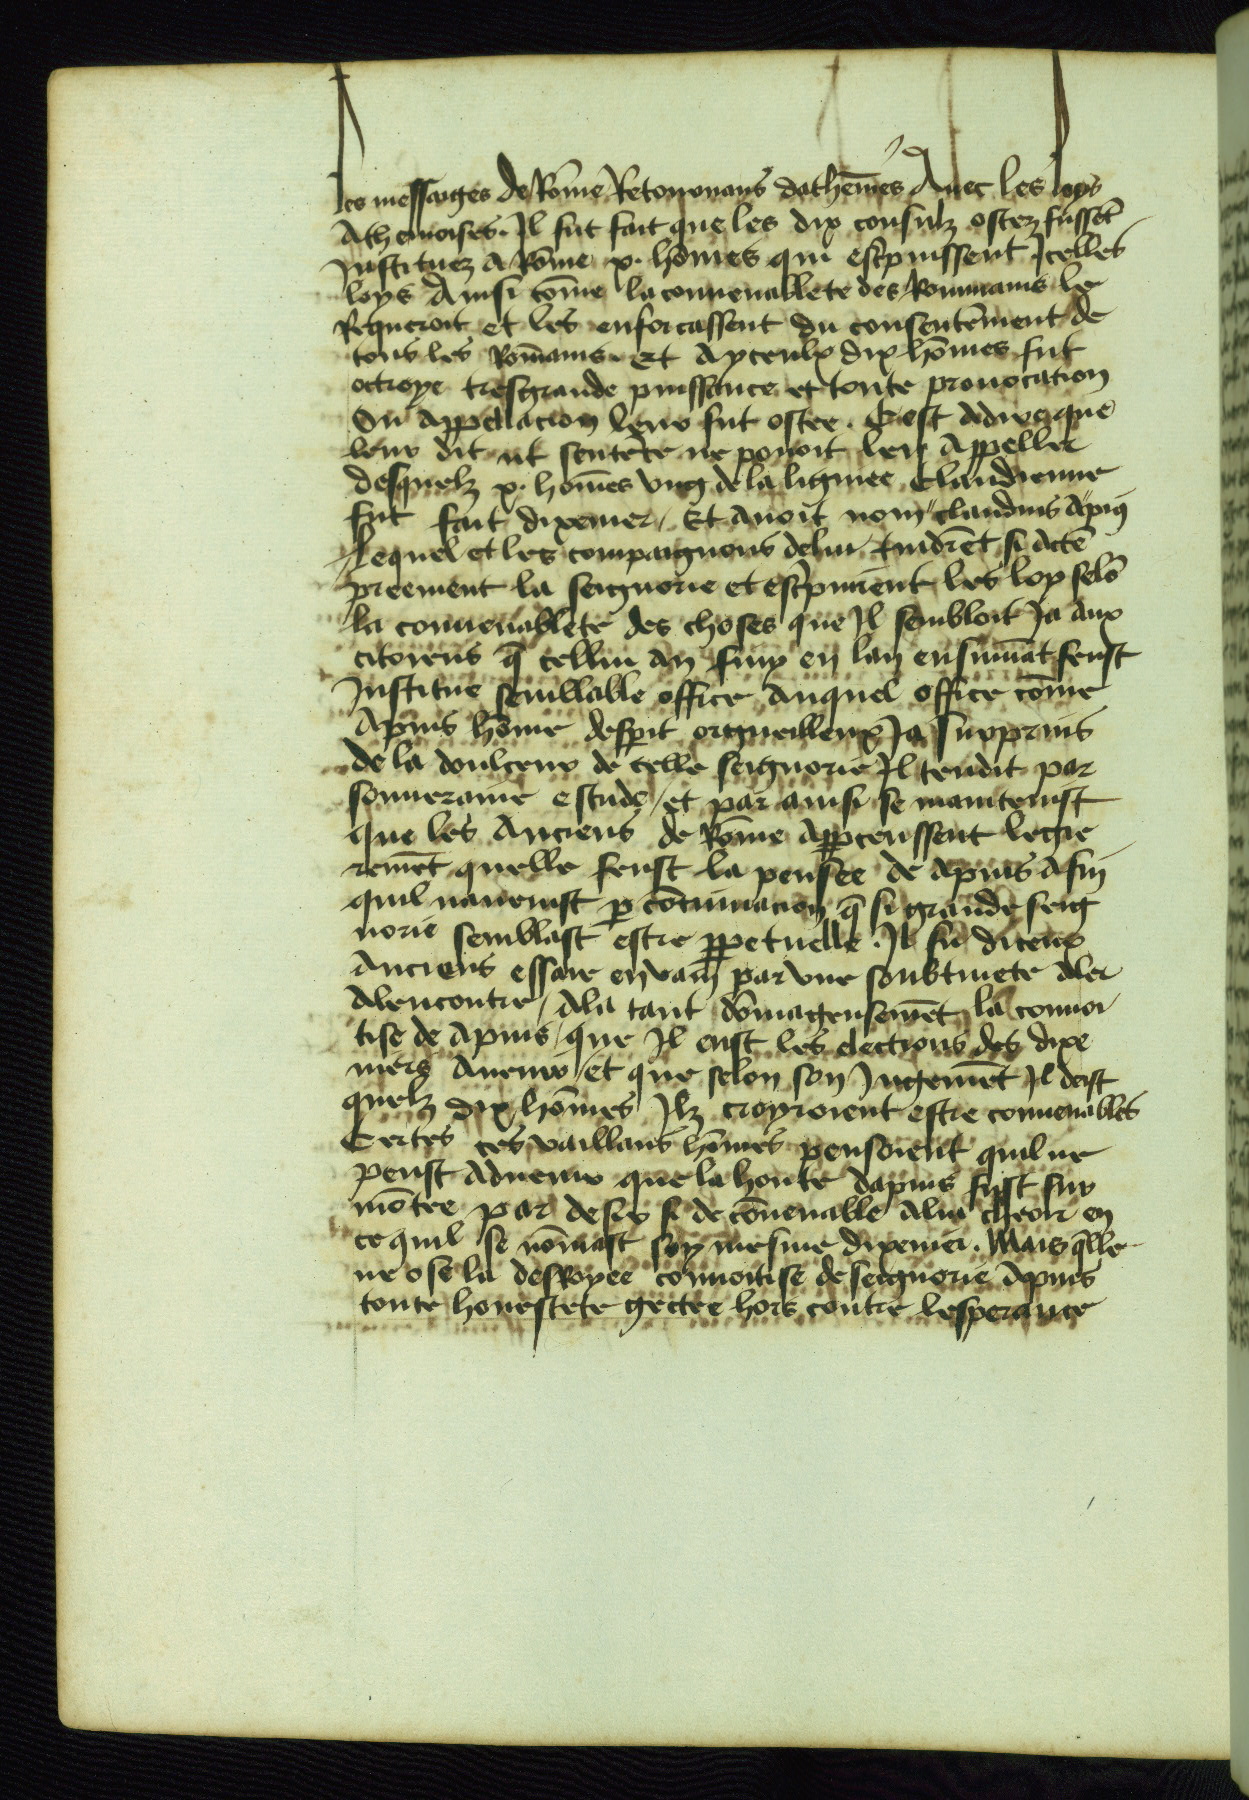 Les messaiges de Rōme Retournans dathēnes Auec les loys
Atheinoises. Il fut fait que les dix consulz ostez fussēt
Instituez a Rōme x. hōmes qui escpuissent Icelles
loys Ainsi cōme la conuenablete des Rommains le
Requeroit et les enforcassent du consentēment de
tous les Romains. et Ayceulx dix hōmes fut
octroye tresgrande puissance et toute prouocation
Ou appellacion leur fut ostee. Cest adire que
leur dit ut sentēce ne pouoit len Appeller
desquelz x. homēs vng de la lignee Claudienne
fut fait dixenier / Et auoit nom claudius Apiꝯ
Lequel et les compaignons delui tindrēt si actē
preement la seignorie et escpuirent les loys selō
la conuenablete des choses que Il sembloit Ja aux
citoiens q̄ cellui an finy en lan ensuiuāt feust
Institue semblable office Auquel office cōme
Apius hōme desperit orgueilleux Ja surpruis
de la doulceur de celle seignorie Il tendit par
souueraine estude / et par ainsi se maintenist
que les Anciens de Rōme apperceussent legie
remēt quelle feust la pensee de apius Afin
quil nauenist p̲ cōtinuacion q̄ si grande seig
norie semblast estre p̲petuelle. Il fu diceux
Anciens essaie en vain par vne soubtiuete Aler
Alencontre / Ala tant dōmageusemēt la conuoi
tise de Apius / que Il eust les elections des dixe
niers Auenir / et que selon son Jugemēt Il deist
quelz dix hōmes Ilz croyroient estre conuenables
Certes ces vaillans hōmes pensoient quil ne
peust Aduenir que la honte dapius fust sur
mōtee par desir si de cōuenable alui cheoir en
ce quil se nōmast soy mesme dixenier. Mais q̄lle
ne ose la desroyee conuoitise de seignorie Apius
toute honestete gectee hors contre lesperance